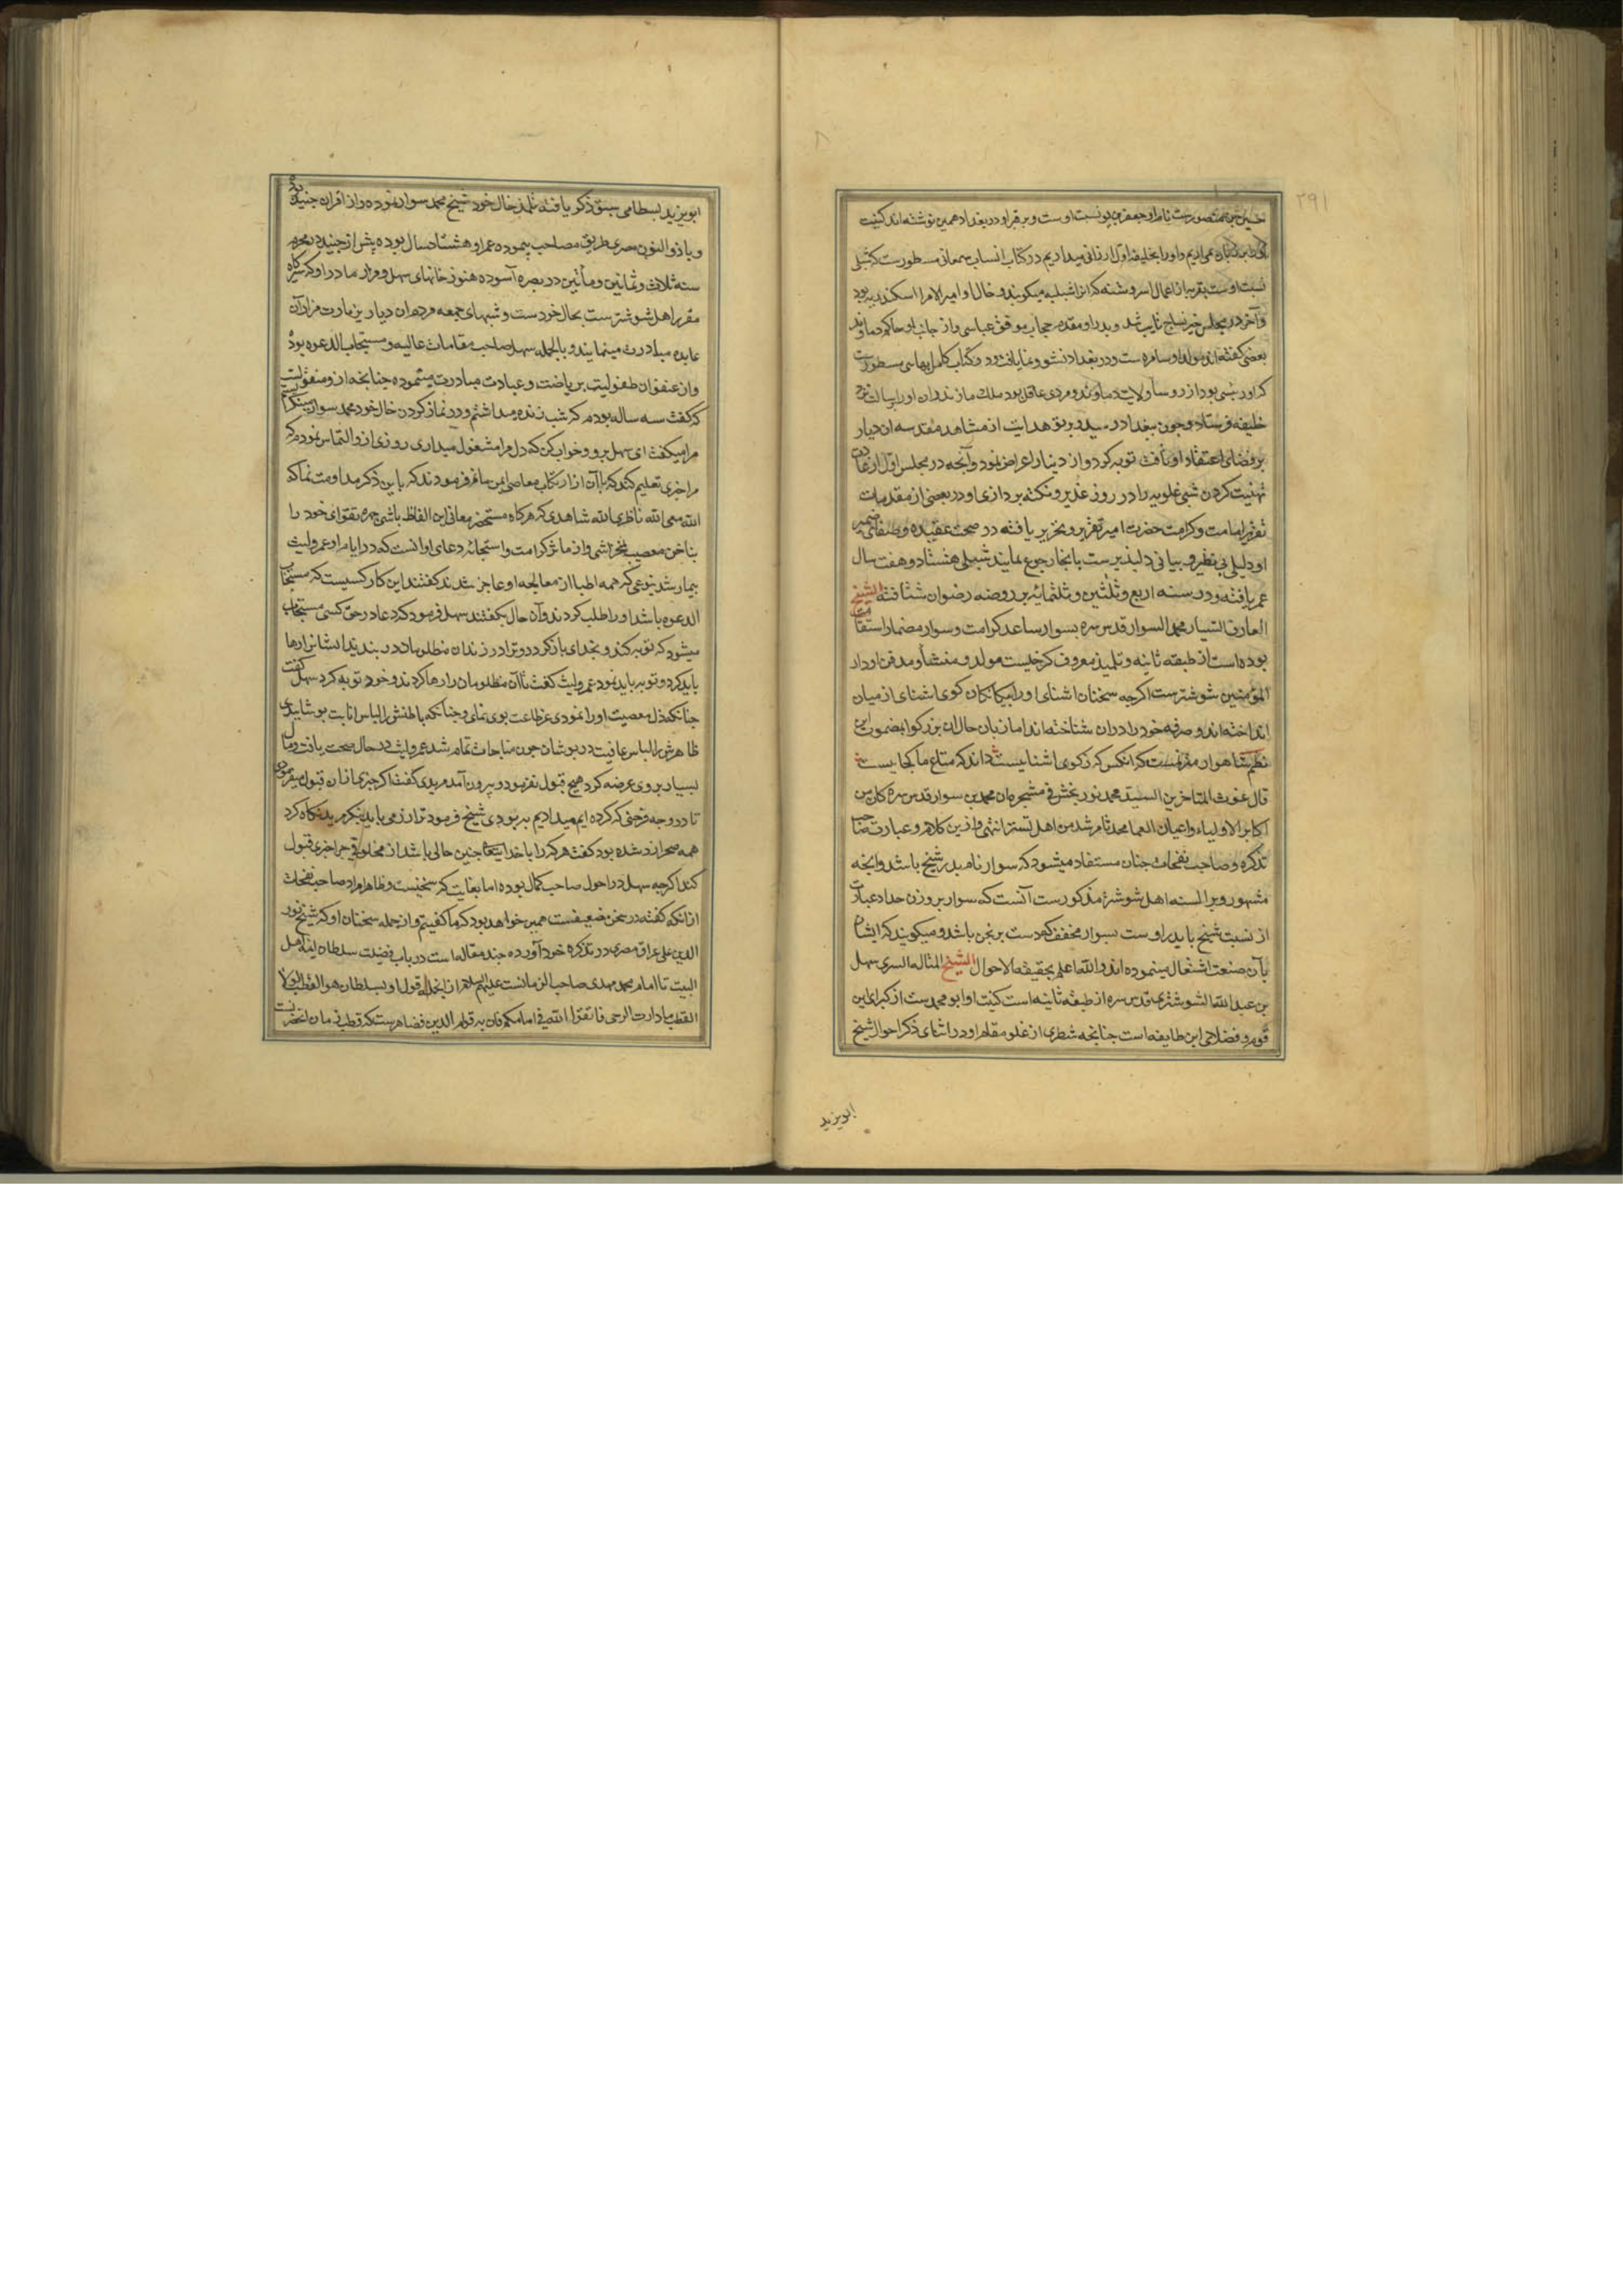 ۲۹۱
حسین بن منصورست نام او جعفر بن یونسست اوست و بر قبر او در بغداد همین نوشته اند کنیت
او را بخلیفه اول ارزانی میدادیم در کتاب انساب سمعانی مسطورست که شبلی
نسبت اوست بقریه از اعمال اسروشنه که انرا شبلیه میکویند و خال او امیر الامرا اسکندریه بود
و آخر در مجلس خیر نساج تایب شد و پدر او مقدم حجاب موفق عباسی و از جانب او حاکم دماوند
بعضی کفته اند مولد او سامره ست و در بغداد نشو و نما یافته بود و کتاب کامل بهایی مسطورست
که او شبی بود از روسا ولایت دماوند و مردی عاقل بود ملک مازندران او را برسالت نزد
خلیفه فرستاد و چون ببغداد رسید و برتو هدایت از مشاهد مقدسه ان دیار
بر فضای اعتقاد او تافت توبه کرد و از دینار اعراض نمود و آنچه در مجلس اول از عادت
تهنیت کردن شبی علویه را در روز غدیر و نکته پردازی او در بعضی از مقدمات
تقریر امامت و کرامت حضرت امیر تقریر و تحریر یافته در صحت عقیده و صفای ضمیر
او دلیلی بی نظیر و بیانی دلپذیرست بانجا رجوع نمایند شبلی هشتاد و هفت سال
عمر یافته و در سنه اربع و ثلثین و ثلثمائه بر روضه رضوان شتافته الشیخ
العارف السیار محمد السوار قدس سره بسوار ساعد کرامت و سوار مضمار استقامت
بوده است از طبقه ثانیه و تلمیذ معروف کرخیست مولد و منشأ و مدفن او دار
المؤمنین شوشترست اکرچه سخنان اشنای او را بیکانکان کوی اشنای از میان
انداخته اند و صرفه خود را در ان شناخته اند اما زبان حال ان بزرکوا بمضمون این
نظم کانکس که ز کوی اشنایست داند که متاع ما کجایست
قال غوث المتاخرین السید محمد نوربخش فی مشجره کان محمد بن سوار قدس سره کان من
اکابر الاولیاء و اعیان العما محمد ثام رشد من اهل تستر انتهی و از ین کلام و عبارت صاحب
تذکره و صاحب نفحات چنان مستفاد میشود که سوار نام پدر شیخ باشد و انچه
مشهور و بر السنه اهل شوشتر مذکورست آنست که سوار بر وزن حداد عبارت
از نسبت شیخ با پدر اوست بسوار مخفف که دست برنجن باشد و میکویند که ایشان
بآن صنعت اشتغال مینموده اند و الله اعلم بحقیقة الاحوال الشیخ المتاله السری سهل
بن عبد الله الشوشتری قدس سره از طبقه ثانیه است کنیت او ابو محمدست از کبرای این
قوم و فضلای این طایفه است چنانچه شطری از علو مقام او در اثنای ذکر احوال شیخ
ابویزید
ابویزید بسطامی سبق ذکر یافته تلمذ خال خود شیخ محمد سوار نموده و از اقران جنید بوده
و با ذو النون مصری طریق مصاحبت پیموده عمر او هشتاد سال بوده پیش از جنید در محرم
سنه ثلاث و ثمانین و مأتین در بصره آسوده هنوز خانهای سهل و مزار مادر او که سیرکاه
مقرر اهل شوشترست بحال خودست و شبهای جمعه مردم ان دیار بزیارت مزار آن
عابده مبادرت مینمایند و بالجمله سهل صاحب مقامات عالیه و مستجاب الدعوه بوده
و از عنفوان طفولیت بریاضت و عبادت مبادرت مینموده چنانچه از و منقولست
که کفت سه ساله بودم که شب زنده میداشتم و در نماز کردن خال خود محمد سوار مینکریستم
مرا میکفت ای سهل برو و خواب کن که دل مرا مشغول میداری روزی از و التماس نمودم که
مرا چیزی تعلیم کند که با آن از ارتکاب معاصی ایمن مانم فرمودند که باین ذکر مداومت نما که
الله معی الله ناظری الله شاهدی که هرکاه مستحضر معانی این الفاظ باشی چهره تقوای خود را
بناخن معصیت نخراشی و از مآثر کرامت و استجابه دعای او انست که در ایام او عمرو لیث
بیمار شد بنوعی که همه اطبا از معالجه او عاجز شدند کفتند این کار کسیست که مستجاب
الدعوه باشد او را طلب کردند و آن حال بکفتند سهل فرمود کرد عا در حق کسی مستجاب
میشود که توبه کند و بخدای باز کردد و ترا در زندان مظلومان در بندند ایشانرا رها
باید کرد و توبه باید نمود عمرو لیث کفت تا آن مظلومان را رها کردند و خود توبه کرد سهل کفت
چنانکه ذل معصیت او را نمودی عز طاعت بوی نمای و چنانکه باطنش را لباس انابت پوشانیدی
ظاهرش را لباس عافیت در پوشان چون مناجات تمام شد عمرو لیث در حال صحت یافت و مال
بسیار بر وی عرضه کرد هیچ قبول نفرمود و بیرون آمد مریدی کفت اکر چیزی از ان قبول میفرمودی
تا در وجه قرضی که کرده ایم میدادیم به بودی شیخ فرمود ترا زر می باید بنکر مرید نکاه کرد
همه صحرا زر شده بود کفت هر کرا با خدایتعالی چنین حالی باشد از مخلوقی چرا چیزی قبول
کند اکرچه سهل در احول صاحب کمال بوده اما بغایت کم سخنیست و ظاهر مراد صاحب نفحات
از انکه کفته در سخن ضعیفست همین خواهد بود که ما کفتیم و از جمله سخنان او که شیخ نور
الدین علی عراق مصری در تذکره خود آورده چند مقاله است در باب فضیلت سلطان ایمه اهل
البیت تا امام محمد مهدی صاحب الزمانست علیهم السلام از انجمله قول او بسلطان هو القطب لولا
القطب ما دارت الرحی فاتقوا الله فی امامکم فان به قوام الدین فضاهرست که قطب زمان انحضرتست